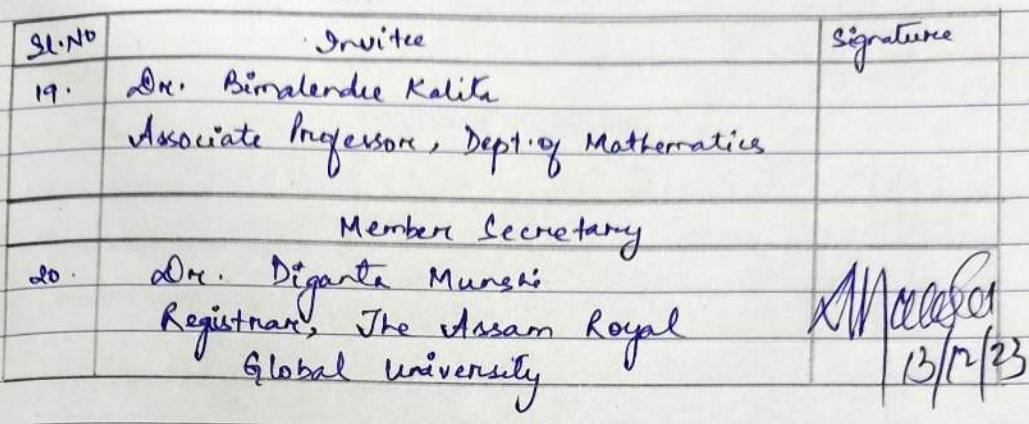 Sl.No Invitee Signature
19. Dr. Bimalendu Kalita
Associate Professor, Dept. of Mathematics
Member Secretary
20. Dr. Diganta Munshi
Registrar, The Assam Royal
Global University
13/12/23